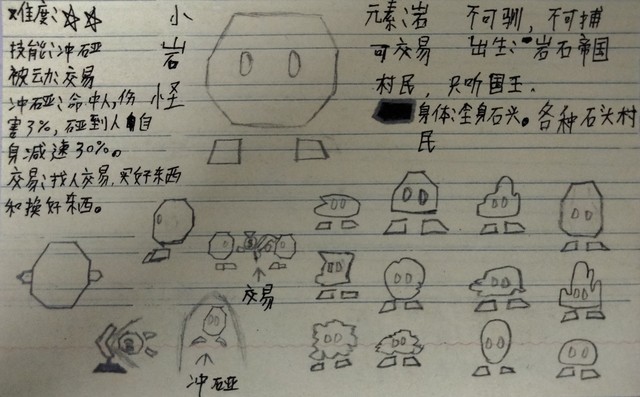 难度:☆☆
技能:冲碰
被动:交易
冲碰:命中人,伤
害3%,碰到人自
身减速30%。
交易:找人交易,买好东西
和换好东西。
小
岩
怪
元素:岩 不可驯,不可捕
可交易 出生:岩石帝国
村民,只听国王.
身体:全身石头。各种石头村
民
交易
冲碰